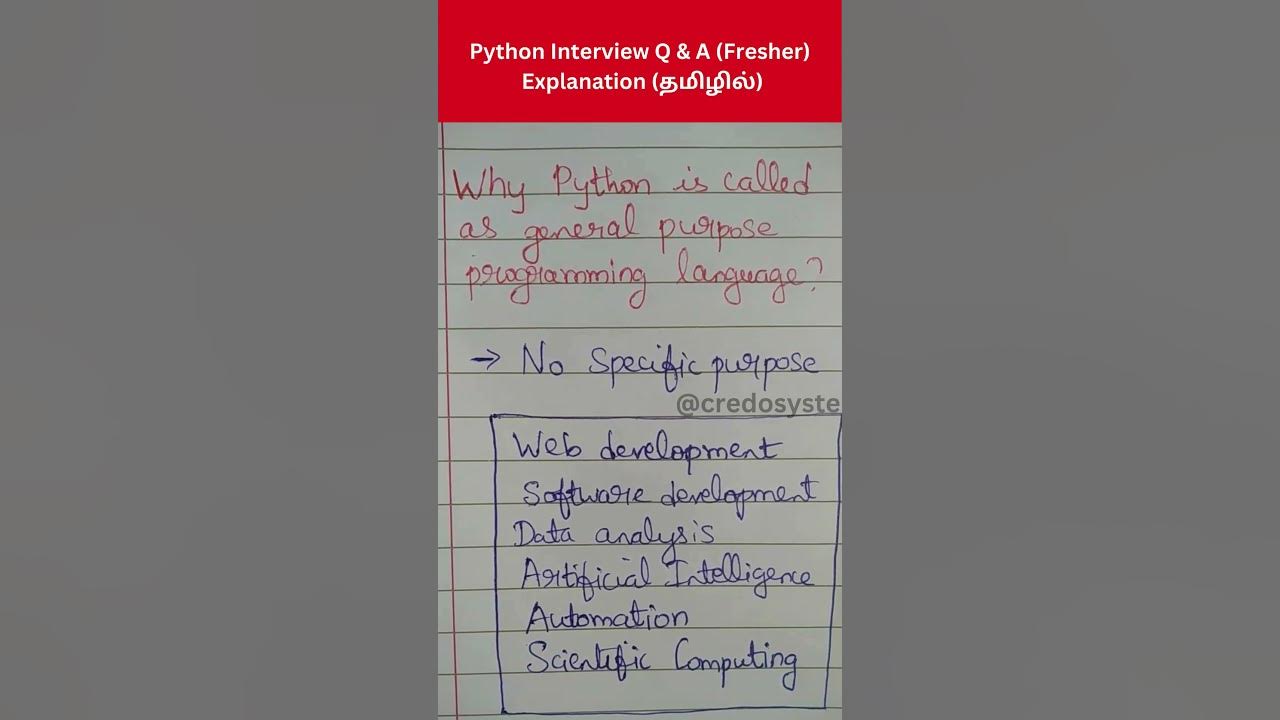 Python Interview Q & A (Fresher)
Explanation (தமிழில்)
Why Python is called
as general purpose
programming language?
→ No Specific purpose
@credosyste
Web development
Software development
Data analysis
Artificial Intelligence
Automation
Scientific Computing